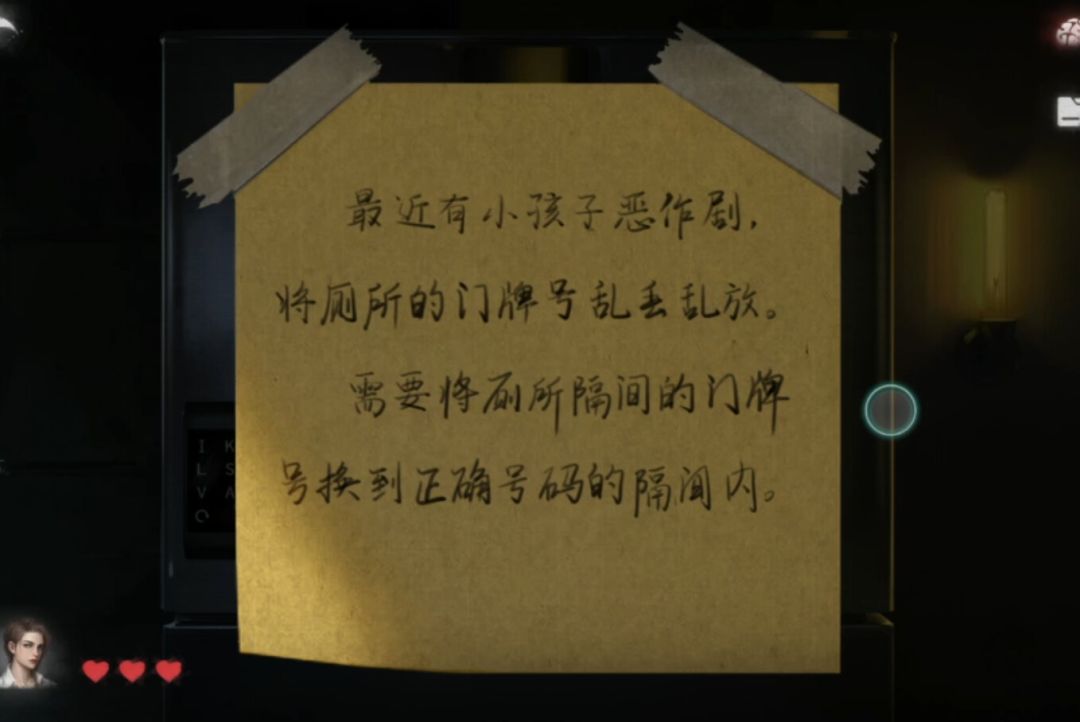 最近有小孩子恶作剧,
将厕所的门牌号乱丢乱放。
需要将厕所隔间的门牌
号换到正确号码的隔间内。
I K
L S
V A